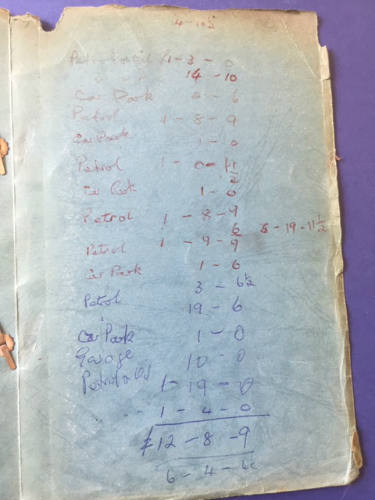 4-10½
Petrol & oil 1-3-0
14-10
Car Park 0-6
Petrol 1-8-9
Car Park 1-0
Petrol 1-0-11
½
Car Park 1-0
Petrol 1-8-9
6 8-19-11½
Petrol 1-9-9
Car Park 1-6
3-6½
Petrol 19-6
Car Park 1-0
Garage 10-0
Petrol & Oil 1-19-0
" " 1-4-0
£12-8-9
6-4-